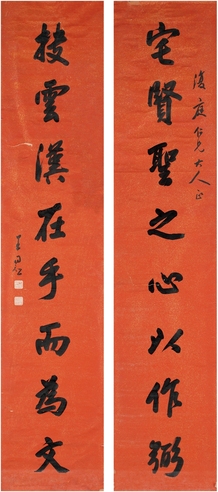 宅賢聖之心以作弼
復庭仁兄大人正
抉雲漢在手而為文